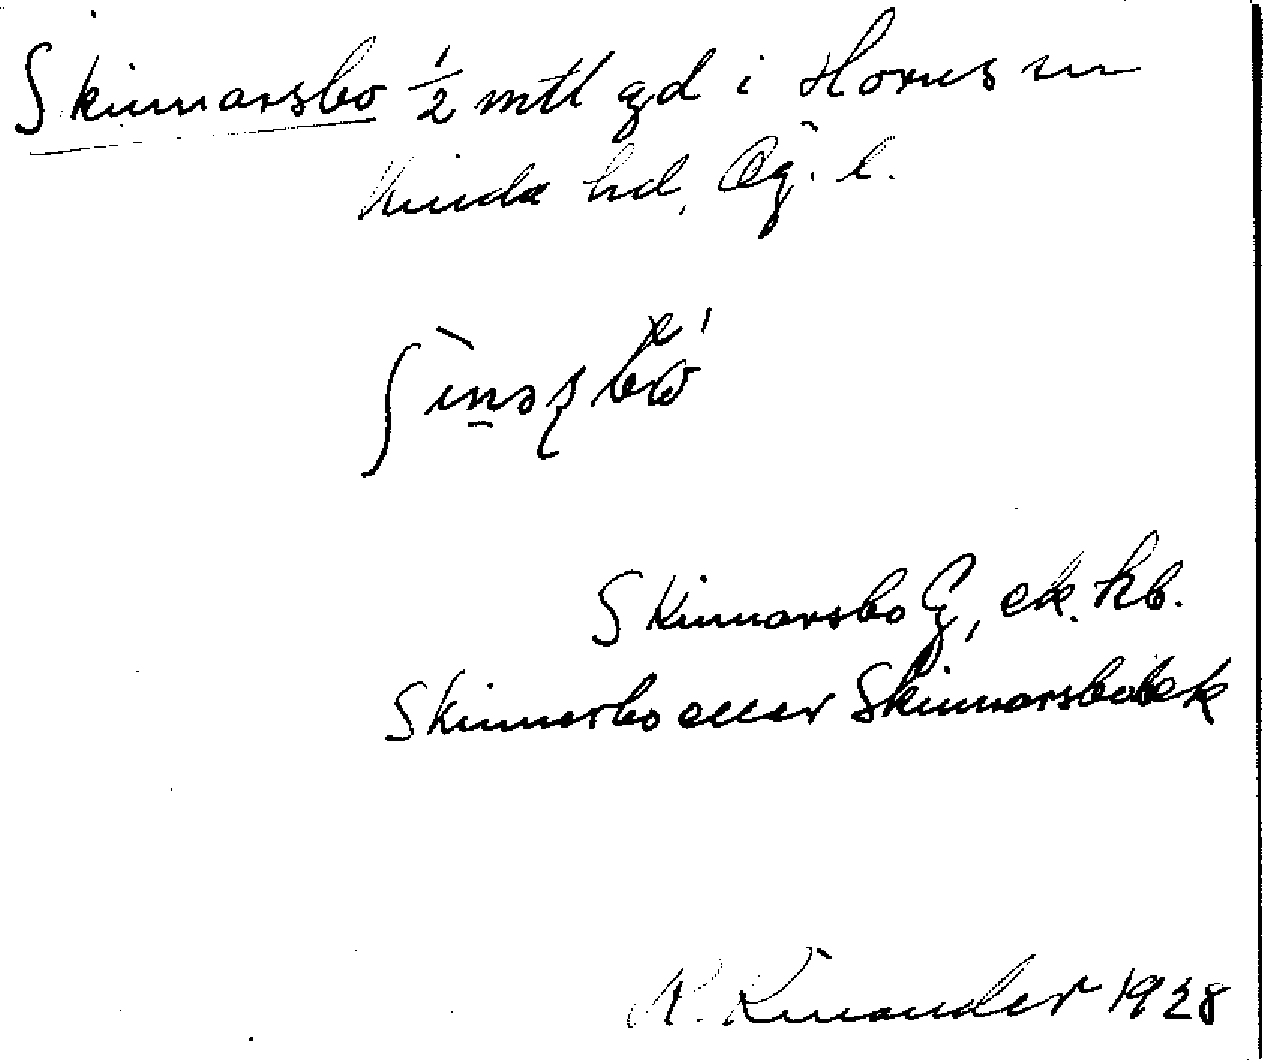 Skinnarsbo ½ mtl gd i Horns sn
Kinda hd, Ög. l.
Skinnarsbo G, ek. kb.
Skinnerbo eller Skinnarsbo ek
K. Kinander 1928